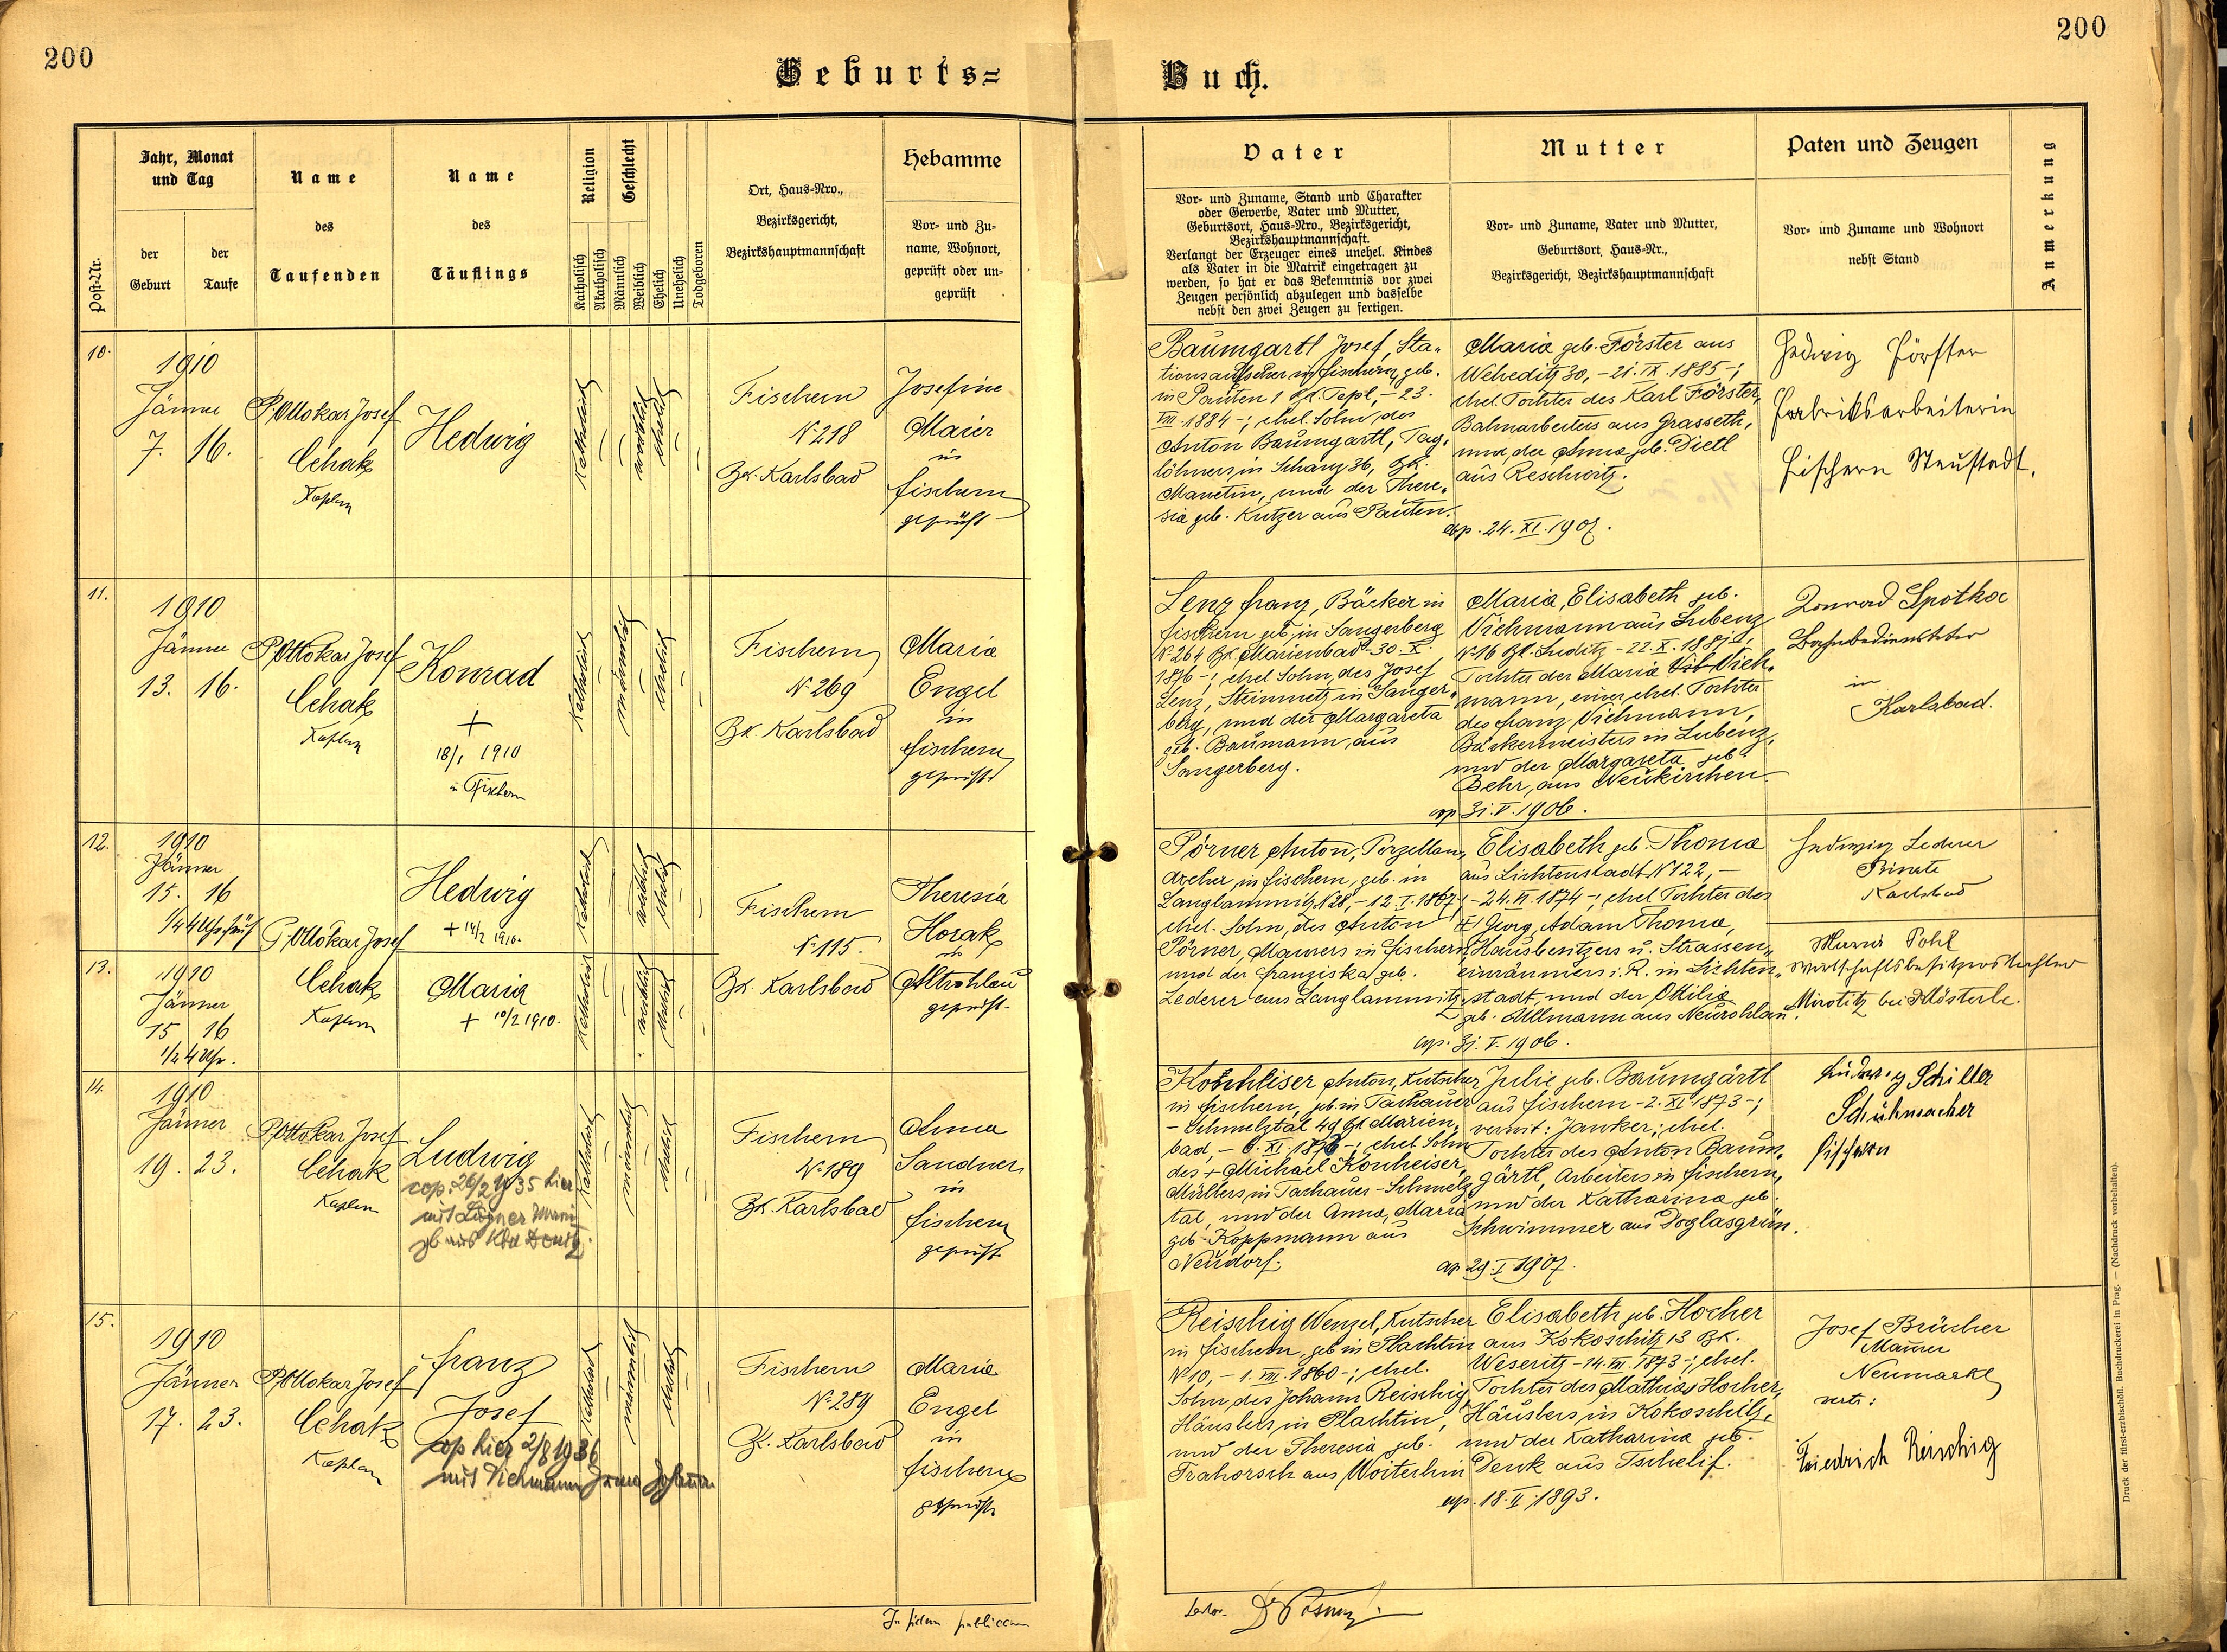 200
200
Geburts=
Buch.
Post-Nr.
Jahr, Monat
und Tag
der
Geburt
der
Taufe
Name
des
Taufenden
Name
des
Täuflings
Religion
Katholisch
Akatholisch
Geschlecht
Männlich
Weiblich
Ehelich
Unehelich
Todgeboren
Ort, Haus-Nro.,
Bezirksgericht,
Bezirkshauptmannschaft
Hebamme
Vor- und Zu-
name, Wohnort,
geprüft oder un-
geprüft
Vater
Vor- und Zuname, Stand und Charakter
oder Gewerbe, Vater und Mutter,
Geburtsort, Haus-Nro., Bezirksgericht,
Bezirkshauptmannschaft.
Verlangt der Erzeuger eines unehel. Kindes
als Vater in die Matrik eingetragen zu
werden, so hat er das Bekenntnis vor zwei
Zeugen persönlich abzulegen und dasselbe
nebst den zwei Zeugen zu fertigen.
Mutter
Vor- und Zuname, Vater und Mutter,
Geburtsort, Haus-Nr.,
Bezirksgericht, Bezirkshauptmannschaft
Paten und Zeugen
Vor- und Zuname und Wohnort
nebst Stand
Anmerkung
10.
1910
Jänner
7. 16.
P. Ottokar Josef
Cehak
Kaplan
Hedwig
Katholisch
weiblich
ehelich
Fischern
N. 218
BK. Karlsbad
Josefine
Maier
in
Fischern
geprüft
Baumgartl Josef, Sta-
tionsaufseher in Fischern, geb.
in Pauten 1 BK. Tepl, - 23.
VIII. 1884 -; ehel. Sohn des
Anton Baumgartl, Tag-
löhners in Schanz 36, BK.
Manetin, und der There-
sia geb. Kutzer aus Pauten.
Maria geb. Förster aus
Weheditz 30, - 21. IX. 1885 -;
ehel. Tochter des Karl Förster,
Bahnarbeiters aus Grasseth,
und der Anna geb. Dietl
aus Reschwitz.
cop. 24. XI. 1907.
Hedwig Förster
Fabriksarbeiterin
Fischern Neustadt.
11.
1910
Jänner
13. 16.
P. Ottokar Josef
Cehak
Kaplan
Konrad
+
18/1 1910
in Fischern
Katholisch
männlich
ehelich
Fischern
N. 269
BK. Karlsbad
Maria
Engel
in
Fischern
geprüft
Lenz Franz, Bäcker in
Fischern geb. in Sangerberg
N. 264 BK. Marienbad - 30. X.
1876 -; ehel. Sohn des Josef
Lenz, Steinmetz in Sanger-
berg, und der Margareta
geb. Baumann, aus
Sangerberg.
Maria, Elisabeth geb.
Viehmann aus Lubenz
N. 16 BK. Luditz - 22. X. 1881 -,
Tochter der Maria Vieh-
mann, einer ehel. Tochter
des Franz Viehmann,
Bäckermeisters in Lubenz,
und der Margareta geb.
Behr, aus Neukirchen
cop. 31. V. 1906.
Konrad Spothol
Bahnbediensteter
in
Karlsbad.
12.
1910
Jänner
15. 16
1/4 4 Uhr früh
P. Ottokar Josef
Cehak
Kaplan
Hedwig
+ 14/2 1910.
Katholisch
weiblich
ehelich
Fischern
N. 115.
BK. Karlsbad
Theresia
Horak
in
Altrohlau
geprüft.
13.
1910
Jänner
15 16
1/2 4 Uhr.
Maria
+ 10/2 1910.
Katholisch
weiblich
ehelich
Pörner Anton, Porzellan-
dreher in Fischern, geb. in
Langlammitz N. 28, - 12. I. 1867 -;
ehel. Sohn des Anton
Pörner, Maurers in Fischern,
und der Franziska geb.
Lederer aus Langlammitz.
Elisabeth geb. Thoma
aus Lichtenstadt N. 122, -
- 24. VI. 1874 -; ehel. Tochter des
Georg, Adam Thoma,
Hausbesitzers u. Strassen-
einräumers i. R. in Lichten-
stadt, und der Ottilia
geb. Ullmann aus Neurohlau.
cop. 31. V. 1906.
Hedwig Lederer
Private
Karlsbad
Maria Pohl
Wirtschaftsbesitzerstochter
Mirotitz bei Klösterle.
14.
1910
Jänner
19. 23.
P. Ottokar Josef
Cehak
Kaplan
Ludwig
cop. 26/2 1935 hier
mit
Katholisch
männlich
ehelich
Fischern
N. 189
BK. Karlsbad
Anna
Sandner
in
Fischern
geprüft
Anton, Kutscher
in Fischern, geb. in Tachauer
- Schmelztal 49 BK. Marien-
bad, - 6. XI. 1876 -; ehel. Sohn
des + Michael Konheiser,
Müllers in Tachauer-Schmelz-
tal, und der Anna, Maria
geb. Koppmann aus
Neudorf.
Julie geb. Baumgärtl
aus Fischern - 2. XI. 1873 -;
verwit: Janker; ehel.
Tochter des Anton Baum-
gärtl, Arbeiters in Fischern,
und der Katharina geb.
Schwimmer aus Doglasgrün.
cop. 29. I. 1907.
Ludwig Schiller
Schuhmacher
Fischern
15.
1910
Jänner
17. 23.
P. Ottokar Josef
Cehak
Kaplan
Franz
Josef
cop hier 2/8 1936
mit
Katholisch
männlich
ehelich
Fischern
N. 289
BK. Karlsbad
Maria
Engel
in
Fischern
geprüft
Reischig Wenzel, Kutscher
in Fischern, geb. in Plachtin
N. 10, - 1. VIII. 1860 -; ehel.
Sohn des Johann Reischig,
Häuslers in Plachtin,
und der Theresia geb.
Frahorsch aus Woitschin
Elisabeth geb. Hocher
aus Kokoschitz 13 BK.
Weseritz - 14. VIII. 1873 -; ehel.
Tochter des Mathias Hocher,
Häuslers in Kokoschitz,
und der Katharina geb.
Denk aus Tschelif.
cop. 18. II. 1893.
Josef Brücher
Maurer
Neumarkt
Friedrich Reischig
In fidem publicam
Druck der fürst-erzbischöfl. Buchdruckerei in Prag. — (Nachdruck vorbehalten).